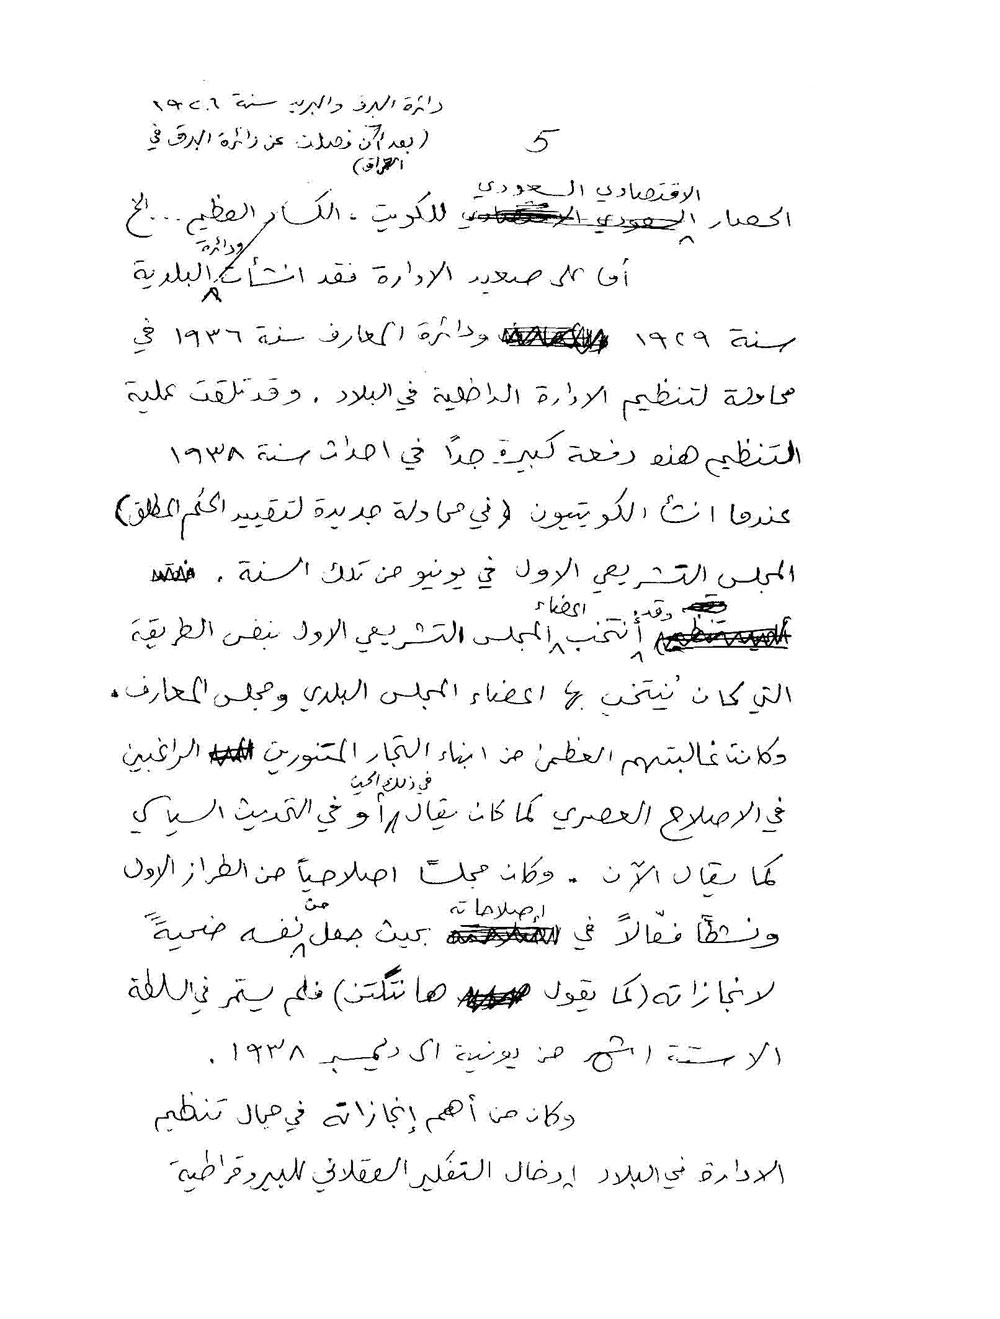 دائرة البرق والبريد سنة ١٩٢٠٦
(بعد أن فصلت عن دائرة البرق في
العراق)
5
الاقتصادي السعودي
الحصار السعودي الاقتصادي للكويت، الكساد العظيم ... الخ
ودائرة
أما على صعيد الادارة فقد انشأت البلدية
سنة ١٩٢٩ ودائرة المعارف سنة ١٩٣٦ في
محاولة لتنظيم الادارة الداخلية في البلاد. وقد تلقت عملية
التنظيم هذه دفعة كبيرة جداً في احداث سنة ١٩٣٨
عندما انشأ الكويتيون (في محاولة جديدة لتقييد الحكم المطلق)
المجلس التشريعي الاول في يونيو من تلك السنة.
وقد اعضاء
أنتخب المجلس التشريعي الاول بنفس الطريقة
التي كان يُنتخب بها اعضاء المجلس البلدي ومجلس المعارف.
وكانت غالبيتهم العظمى من ابناء التجار المتنورين الراغبين
في ذلك الحين
في الاصلاح العصري كما كان يقال أو في التحديث السياسي
كما يقال الآن. وكان مجلساً اصلاحياً من الطراز الاول
إصلاحاته من
ونشطاً فعّالاً في بحيث جعل نفسه ضحيةً
لانجازاته (كما يقول هانتنگتن) فلم يستمر في السلطة
الا ستة اشهر من يونية الى ديسمبر ١٩٣٨.
وكان من أهم إنجازاته في مجال تنظيم
الادارة في البلاد إدخال التفكير العقلاني للبيروقراطية